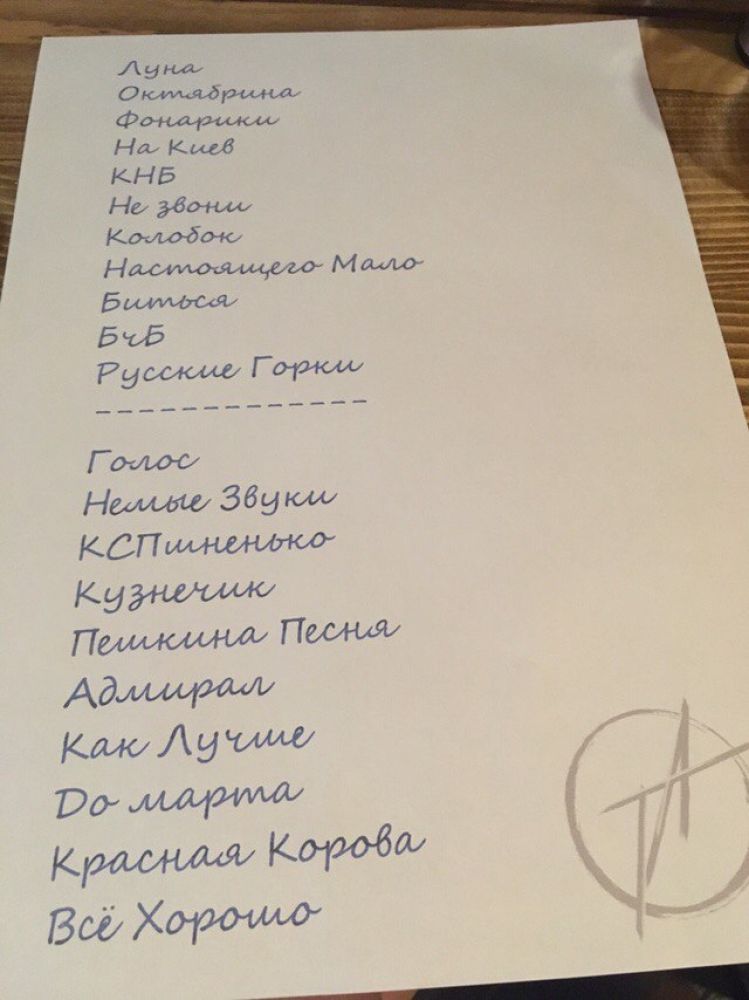 Луна
Октябрина
Фонарики
На Киев
КНБ
Не звони
Колобок
Настоящего Мало
Биться
БчБ
Русские Горки
-------------
Голос
Немые Звуки
КСПшненько
Кузнечик
Пешкина Песня
Адмирал
Как Лучше
До марта
Красная Корова
Всё Хорошо